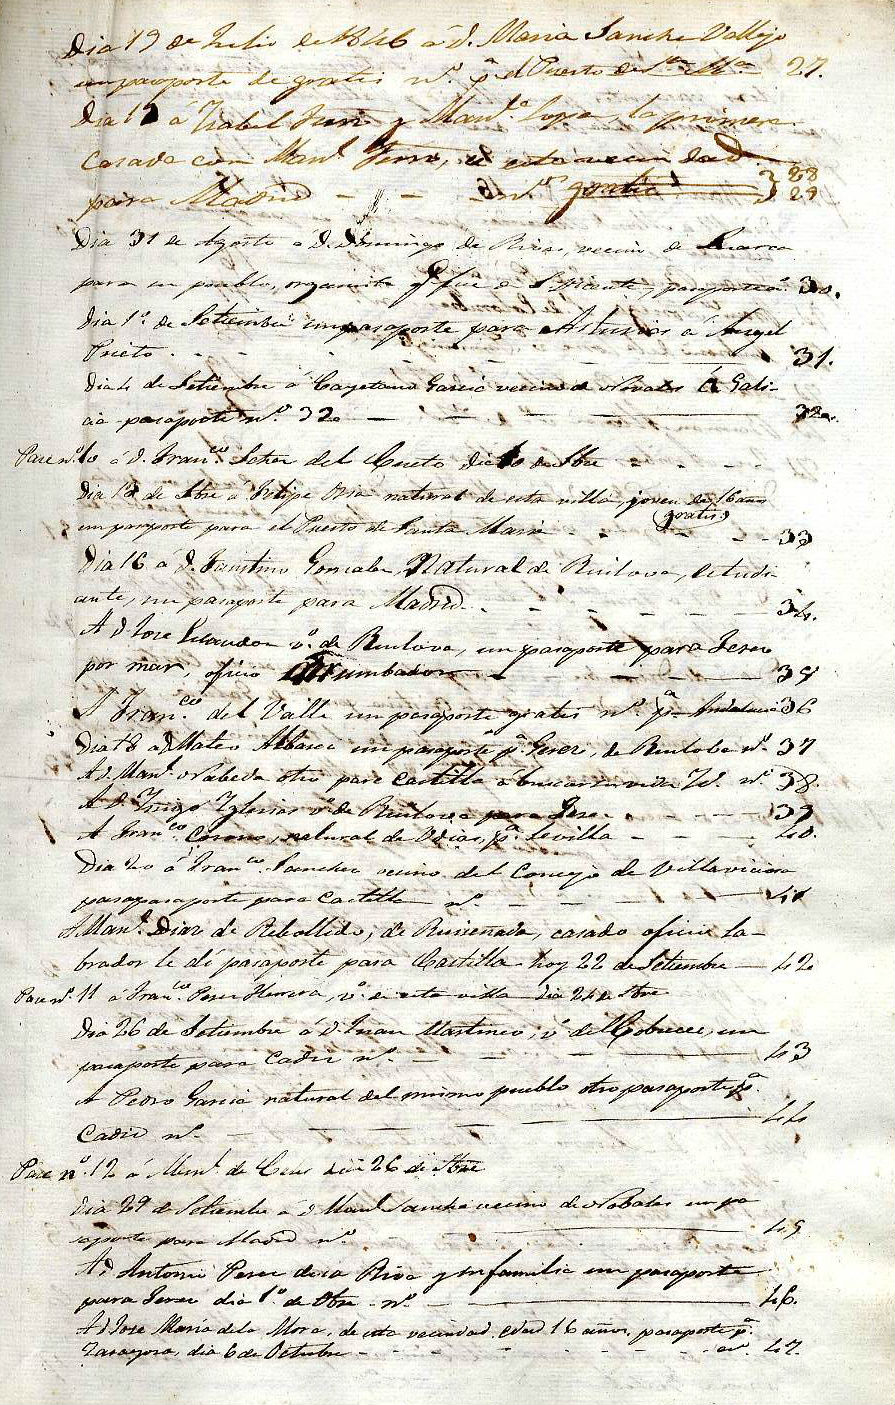 Dia 19 de Julio de 1846 á d. Maria Sanche Vallejo
un pasaporte de gratis nº. pª el Puerto de Sta. Mª 27.
Dia 19 á Isabel y Manl. Lopez, la primera
casada con Manl. de esta vecindad
para Madrid - - - nos. gratis } 28 29
Dia 31 de Agosto a D. Domingo de Rivas, vecino de
para su pueblo, organista de S. Vicente, pasaporte nº. 30.
Dia 1º. de Setiembre un pasaporte para Asturias á Angel
Prieto . - - - 31.
Dia 4 de Setiembre á Cayetano Garcia vecino de Novales á Gali-
cia pasaporte nº. 32 - - - 32.
Pase nº. 10 á d. Franco. del Cueto dia 10 de Stbre - - -
Dia 13 de Stbre á Felipe natural de esta villa, joven de 16 años
un pasaporte para el Puerto de Santa Maria (gratis) - - 33
Dia 16 á d. Faustino Gonzalez, Natural de Ruiloba, Estudi-
ante, un pasaporte para Madrid. - - - 34.
A d. Jose Escandon vº. de Ruiloba, un pasaporte para Jerez
por mar, oficio arrumbador - - - 35
A Franco. del Valle un pasaporte gratis nº. pª Andalucia 36
Dia 18 a d Mateo un pasaporte pª. Jerez, de Ruiloba nº. 37
A d. Manl. Nabeda otro para Castilla á buscar su vida nº. 38.
A d. Iñigo Yglesias vº. de Ruiloba para Jerez. - - - 39
A Franco. natural de Udias, pª. Sevilla - - - 40.
Dia 20 á Franco. Sanchez vecino del Concejo de Villaviciosa
pasapasaporte para Castilla nº. - - - 41
A Manl. Diaz de Rebolledo, de Ruiseñada, casado oficio la-
brador le dí pasaporte para Castilla hoy 22 de Setiembre - 42
Pase nº. 11 á Franco. Perez Herrera, vº. de esta villa dia 24 de Stbre
Dia 26 de Setiembre á d. Juan Martinez, vº. de Cobreces, un
pasaporte para Cadiz nº. - - - 43
A Pedro Garcia natural del mismo pueblo otro pasaporte pª.
Cadiz nº. - - - 44
Pase nº. 12 á Manl. de dia 26 de Stbre
Dia 29 de Setiembre á d. Manl. Sanchez vecino de Nobales un pa
saporte para Madrid nº. - - - 45
A d Antonio Perez de la Riva y su familia un pasaporte
para Jerez dia 1º. de Obre. nº. - - - 46.
A d Jose Maria de la Mora, de esta vecindad, edad 16 años, pasaporte pª.
Zaragoza, dia 6 de Octubre - - - nº. 47.